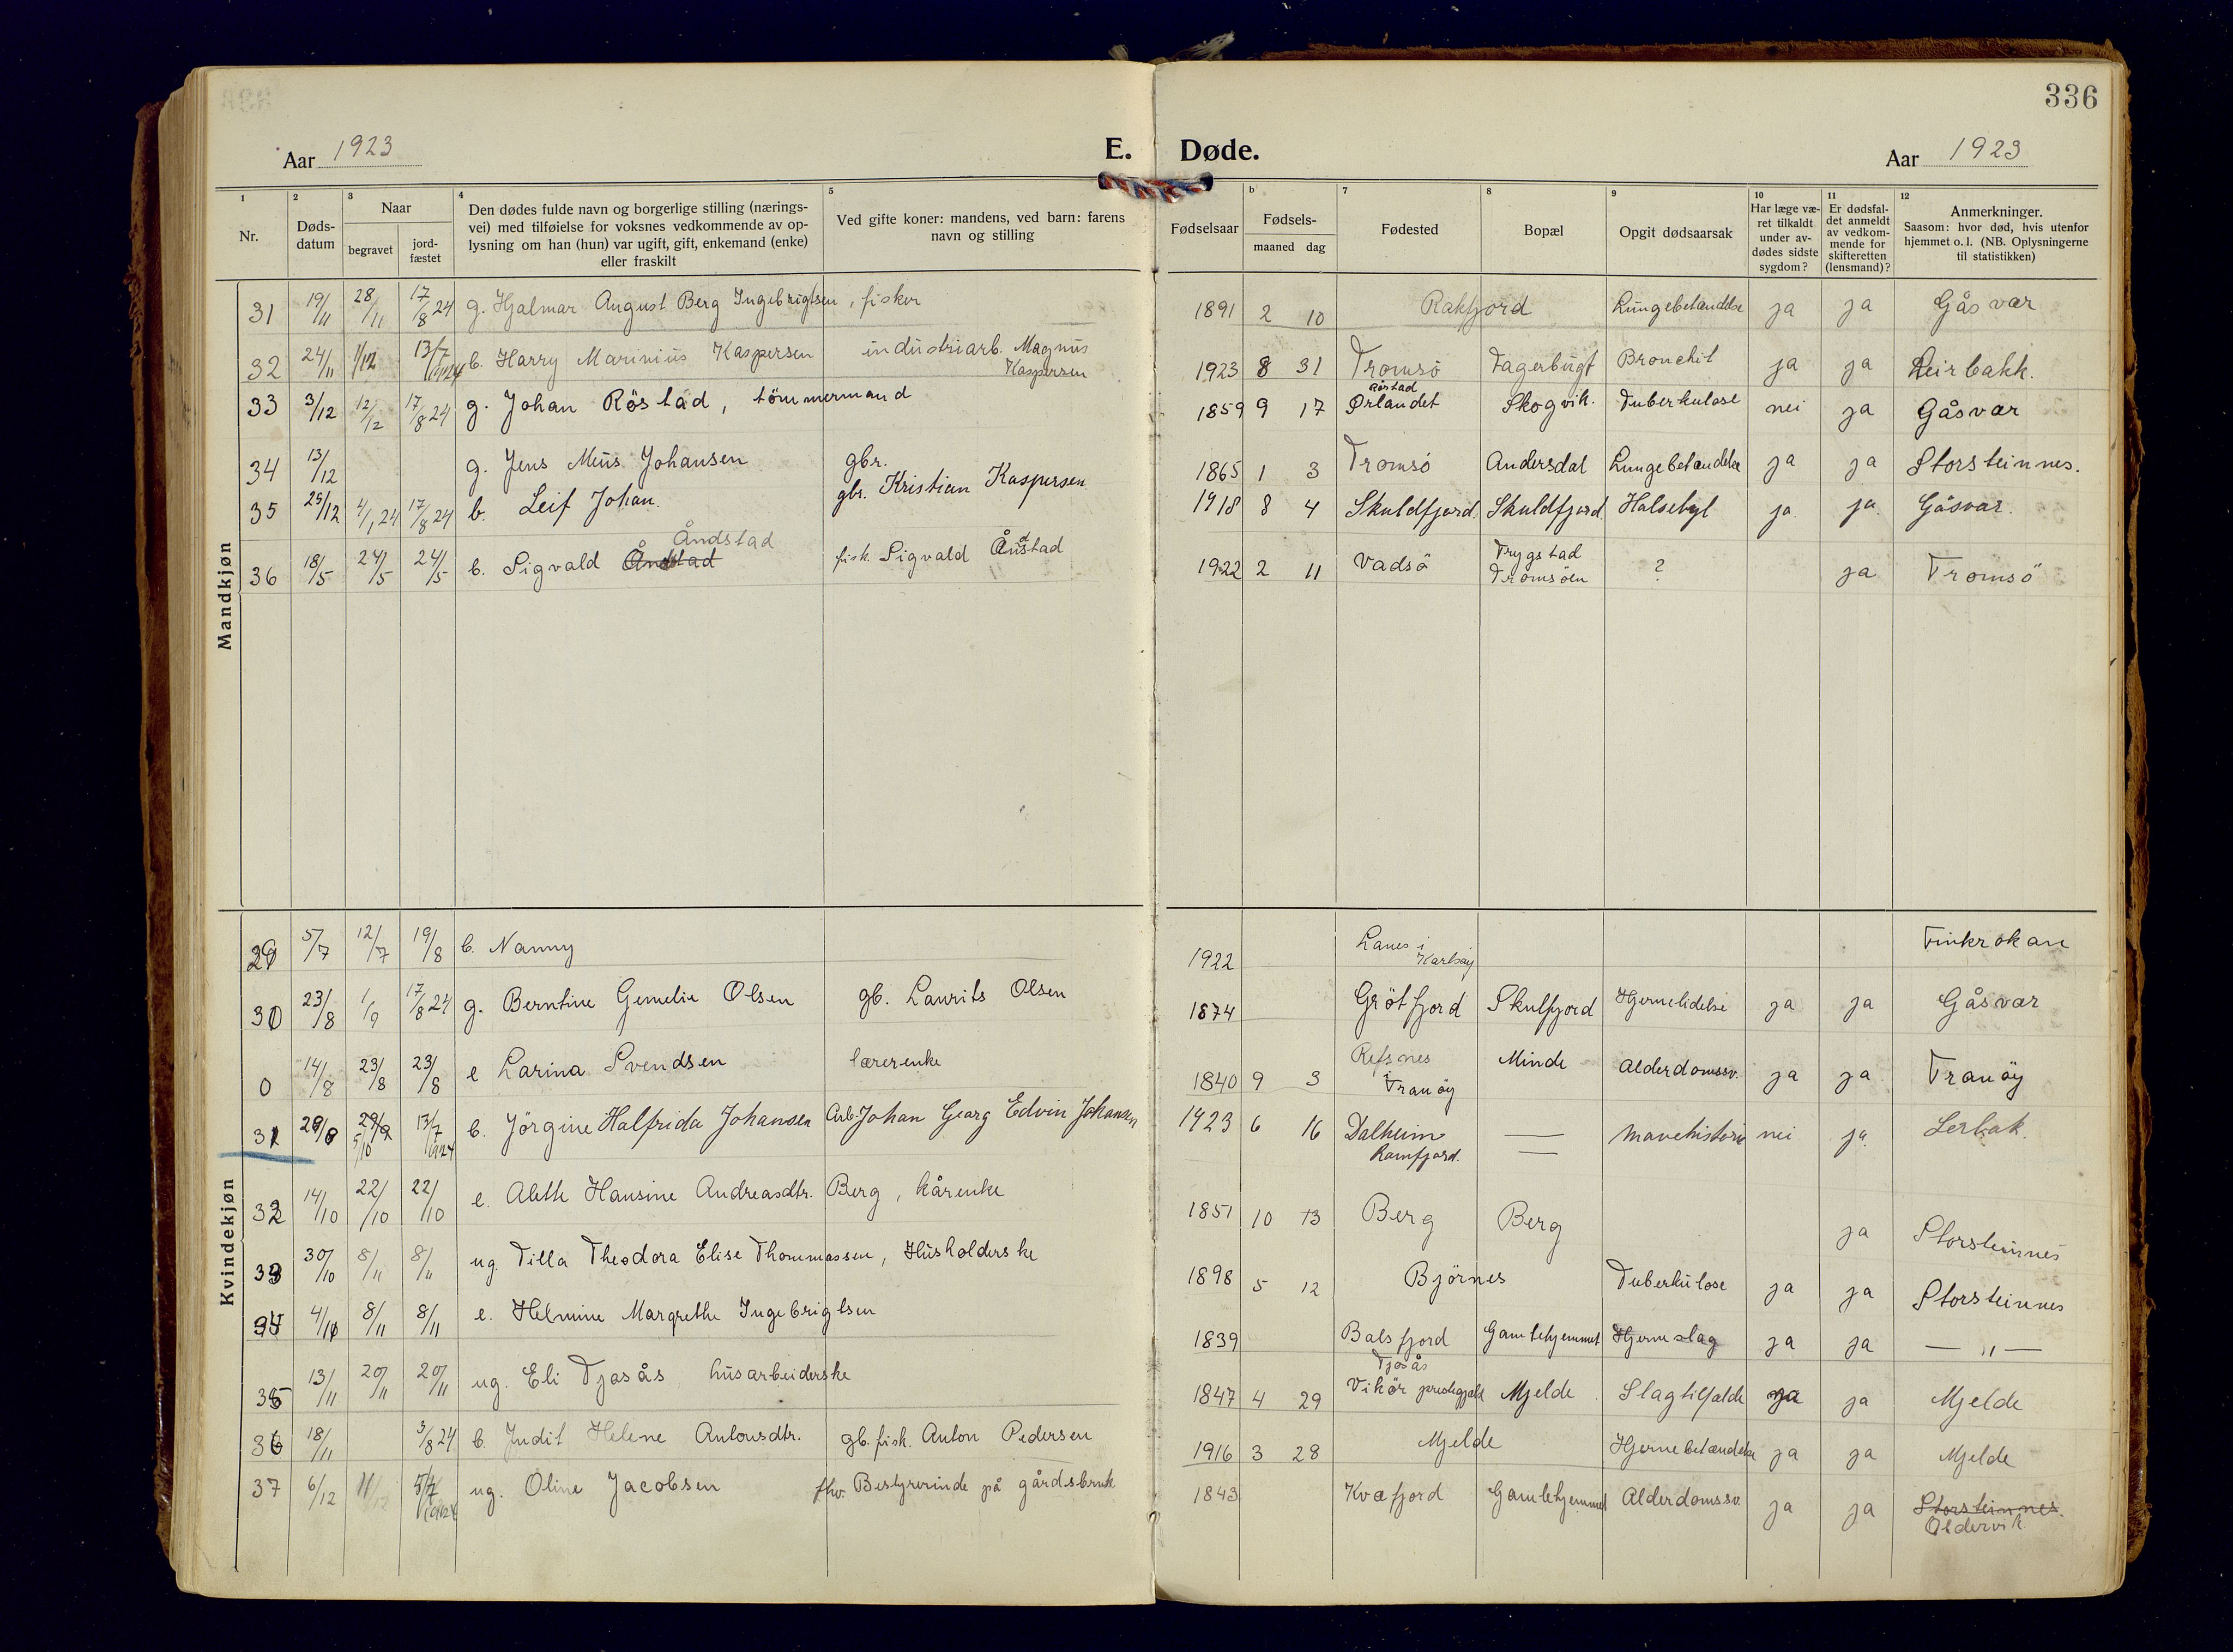 336
Aar 1923 E. Døde. Aar 1923
1 2 3 4 5 b 7 8 9 10 11 12
Nr. Døds-datum Naar begravet jord-fæstet
Den dødes fulde navn og borgerlige stilling (nærings-
vei) med tilføielse for voksnes vedkommende av op-
lysning om han (hun) var ugift, gift, enkemand (enke)
eller fraskilt
Ved gifte koner: mandens, ved barn: farens
navn og stilling
Fødselsaar Fødsels- maaned dag Fødested Bopæl Opgit dødsaarsak
Har læge væ-
ret tilkaldt
under av-
dødes sidste
sygdom?
Er dødsfal-
det anmeldt
av vedkom-
mende for
skifteretten
(lensmand)?
Anmerkninger.
Saasom: hvor død, hvis utenfor
hjemmet o. l. (NB. Oplysningerne
til statistikken)
Mandkjøn
31 19/11 28/11 17/8 24 g. Hjalmar August Berg Ingebrigtsen, fisker 1891 2 10 Rakfjord Lungebetændelse ja ja Gåsvær
32 24/11 1/12 13/7 1924 b. Harry Marinius Kaspersen industriarb. Magnus Kaspersen 1923 8 31 Tromsö Fagerbugt Bronchit ja ja Leirbakk.
33 3/12 12/12 17/8 24 g. Johan Röstad, tömmermand 1859 9 17 Röstad Ørlandet Skogvik. Tuberkulose nei ja Gåsvær
34 13/12 g. Jens Meus Johansen gbr. 1865 1 3 Tromsö Andersdal Lungebetændelse ja ja Storsteinnes.
35 25/12 4/1 24 17/8 24 b. Leif Johan. gbr. Kristian Kaspersen 1918 8 4 Skuldfjord. Skuldfjord. Halsebyl ja ja. Gåsvær.
Åndstad
36 18/5 24/5 24/5 b. Sigvald Åndstad fisk. Sigvald Åndstad 1922 2 11 Vadsö Trygstad Tromsöen ? ja Tromsö
Kvindekjøn
29 5/7 12/7 19/8 b. Nanny 1922 Lanes i Karlsöy Finkrokan
30 23/8 1/9 17/8 24 g. Berntine Gemelie Olsen gb. Laurits Olsen 1874 Grötfjord Skulfjord Hjernelidelse ja ja Gåsvær
0 14/8 23/8 23/8 e Larina Svendsen lærerenke 1840 9 3 Refsnes i Tranöy Minde Alderdomssv. ja ja Tranöy
31 28/8 29/9 5/10 13/7 1924 b. Jörgine Halfrida Johansen Arb. Johan Georg Edvin Johansen 1923 6 16 Dalheim Ramfjord. — — Mavehistorie nei ja Lerbak.
32 14/10 22/10 22/10 e. Aleth Hansine Andreasdtr. Berg, kårenke 1851 10 13 Berg Berg ja Storsteinnes
33 30/10 8/11 8/11 ug. Tilla Theodora Elise Thommassen, Husholderske 1898 5 12 Björnes Tuberkulose ja ja Storsteinnes
34 4/10 8/11 8/11 e. Helmine Margrethe Ingebrigtsen 1839 Balsfjord Gamlehjemmet Hjerneslag ja ja — " —
35 13/11 20/11 20/11 ug. Eli Tjosås husarbeiderske 1847 4 29 Tjosås Vikör prestegjeld Mjelde Slagtilfælde ja ja Mjelde
36 18/11 3/8 24 b. Judit Helene Antonsdtr. gb. fisk. Anton Pedersen 1916 3 28 Mjelde Hjernebetændelse ja ja Mjelde
37 6/12 11/12 5/7 1924 ug. Oline Jacobsen fhv. Bestyrerinde på gårdsbruk 1843 Kvæfjord Gamlehjemmet Alderdomssv. ja ja Storsteinnes. Oldervik.